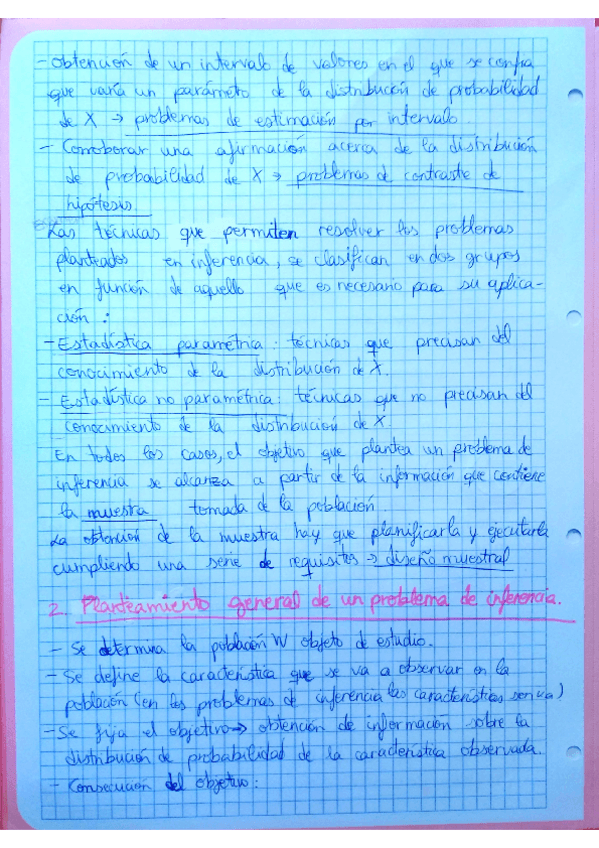 - Obtención de un intervalo de valores en el que se confia
que varía un parámetro de la distribución de probabilidad
de X → problemas de estimación por intervalo.
- Corroborar una afirmación acerca de la distribución
de probabilidad de X → problemas de contraste de
hipótesis.
Las técnicas que permiten resolver los problemas
planteados en inferencia, se clasifican en dos grupos
en función de aquello que es necesario para su aplica-
ción :
- Estadística paramétrica : técnicas que precisan del
conocimiento de la distribución de X.
- Estadística no paramétrica : técnicas que no precisan del
conocimiento de la distribución de X.
En todos los casos, el objetivo que plantea un problema de
inferencia se alcanza a partir de la información que contiene
la muestra tomada de la población.
La obtención de la muestra hay que planificarla y ejecutarla
cumpliendo una serie de requisitos → diseño muestral
2. Planteamiento general de un problema de inferencia.
- Se determina la población W objeto de estudio.
- Se define la característica que se va a observar en la
población (en los problemas de inferencia las características son va)
- Se fija el objetivo → obtención de información sobre la
distribución de probabilidad de la característica observada.
- Consecución del objetivo :